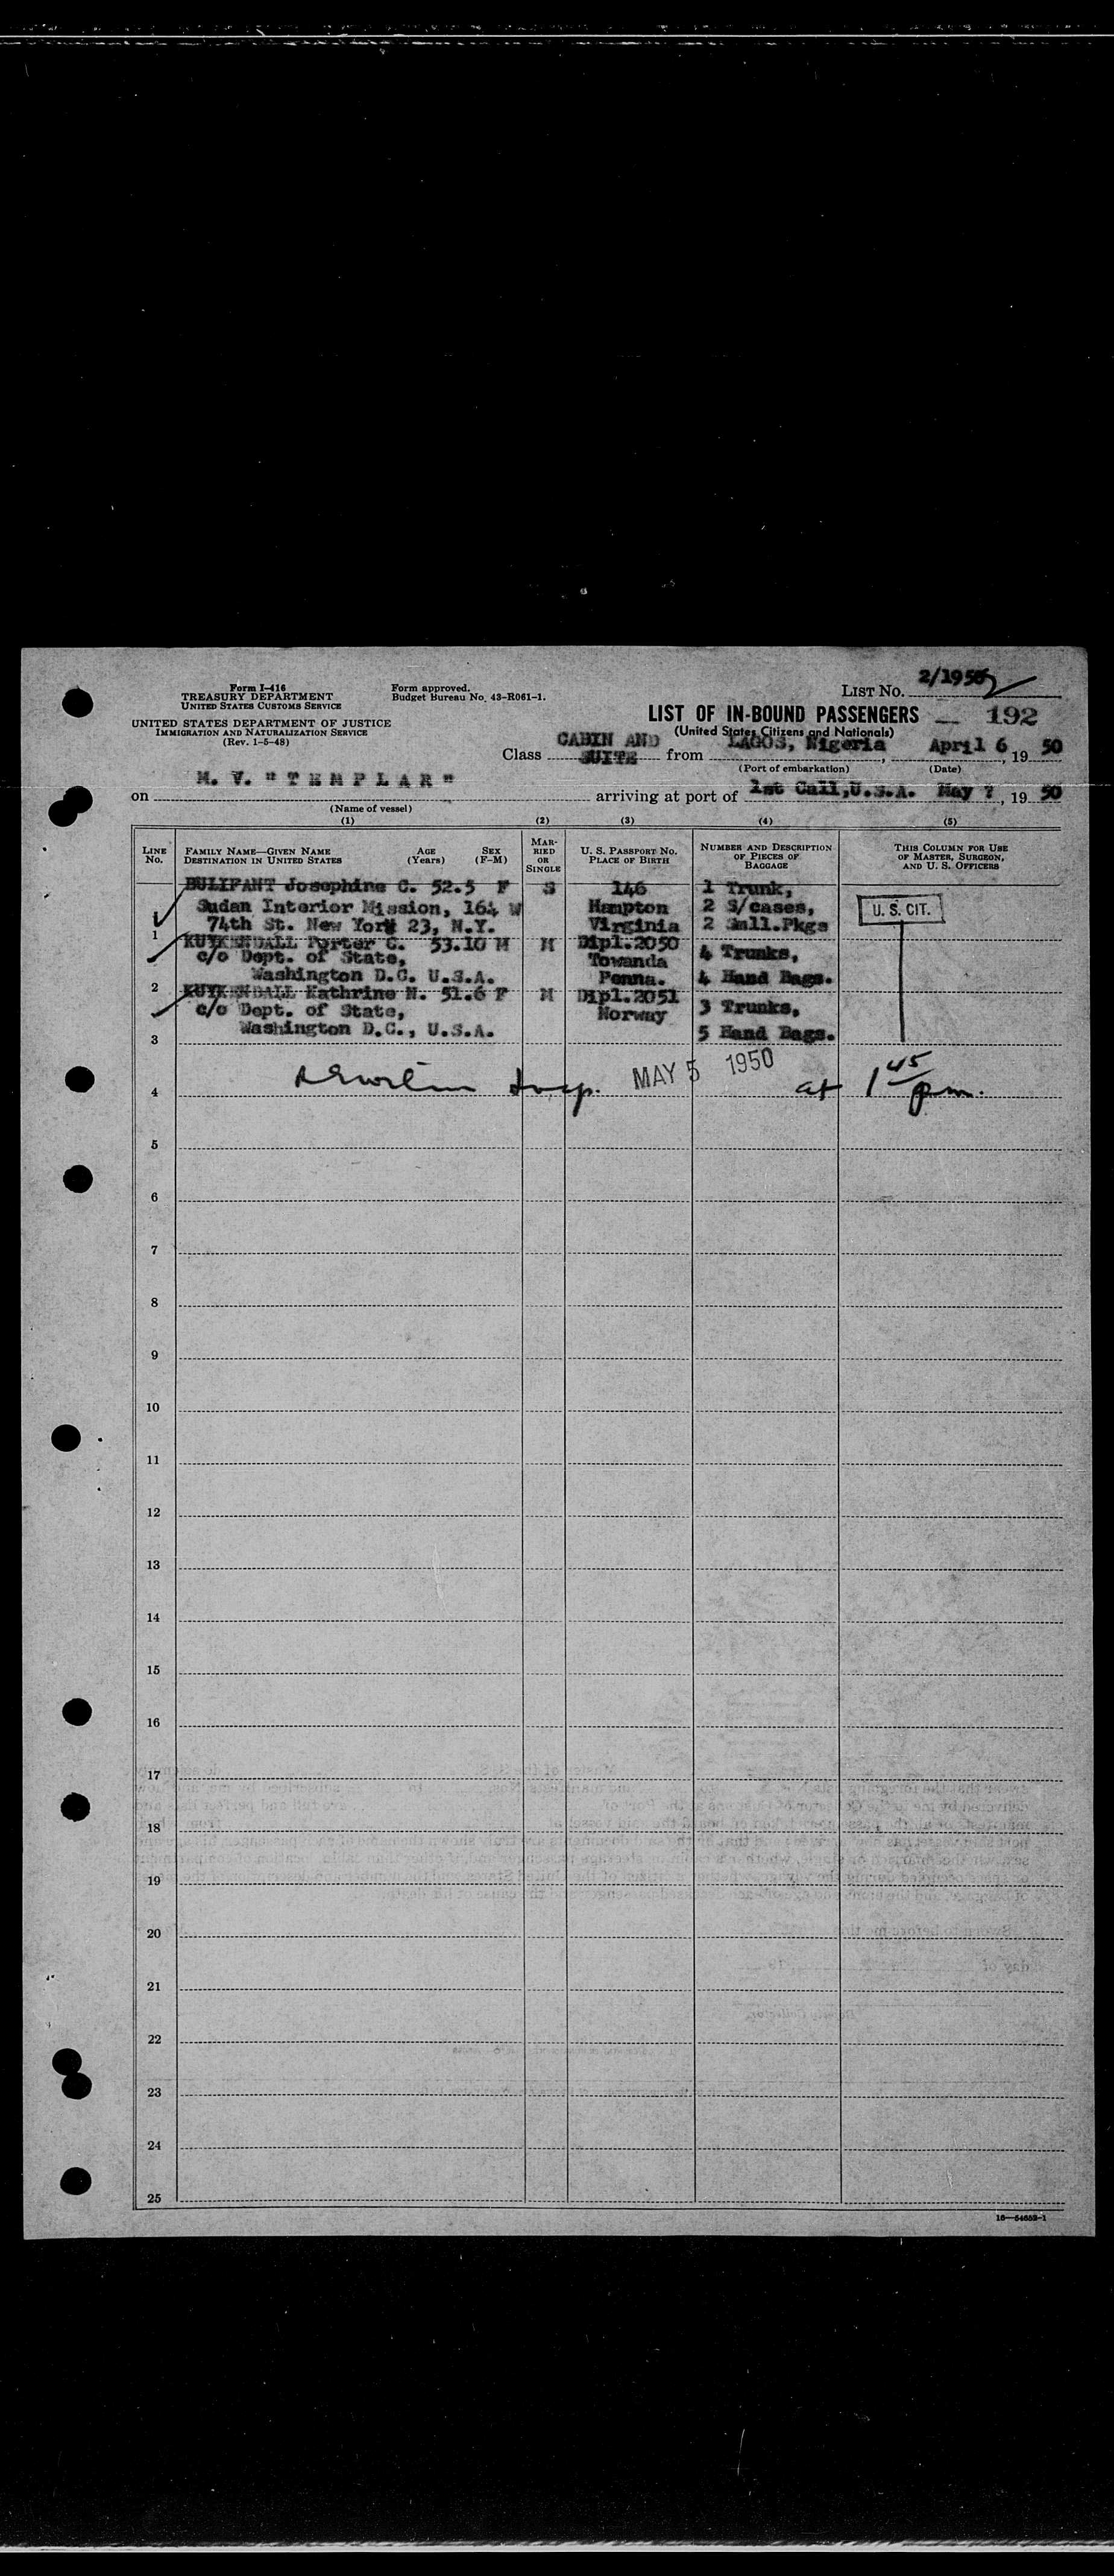 Form I-416
TREASURY DEPARTMENT
UNITED STATES CUSTOMS SERVICE
UNITED STATES DEPARTMENT OF JUSTICE
IMMIGRATION AND NATURALIZATION SERVICE
(Rev. 1-5-48)
Form approved.
Budget Bureau No. 43-R061-1.
LIST NO. 2/1950
LIST OF IN-BOUND PASSENGERS 192
(United States Citizens and Nationals)
Class CABIN AND SUITE from LAGOS, Nigeria, April 6, 1950
(Port of embarkation) (Date)
on M. V. "TEMPLAR" arriving at port of 1st Call, U.S.A. May 7, 1950
(Name of vessel)
(1) (2) (3) (4) (5)
LINE NO. FAMILY NAME—GIVEN NAME DESTINATION IN UNITED STATES AGE (Years) SEX (F-M) MARRIED OR SINGLE U. S. PASSPORT NO. PLACE OF BIRTH NUMBER AND DESCRIPTION OF PIECES OF BAGGAGE THIS COLUMN FOR USE OF MASTER, SURGEON, AND U. S. OFFICERS
BULIFANT Josephine C. 52.5 F S 146 1 Trunk,
Sudan Interior Mission, 164 W Hampton 2 S/cases, U. S. CIT.
1 74th St. New York 23, N.Y. Virginia 2 Smll.Pkgs
KUYKENDALL Porter C. 53.10 M M Dipl.2050
c/o Dept. of State, Towanda 4 Trunks,
2 Washington D.C. U.S.A. Penna. 4 Hand Bags.
KUYKENDALL Kathrine N. 51.6 F M Dipl.2051
c/o Dept. of State, Norway 3 Trunks,
3 Washington D.C., U.S.A. 5 Hand Bags.
4 Insp. MAY 5 1950 at 1 45 pm.
5
6
7
8
9
10
11
12
13
14
15
16
17
18
19
20
21
22
23
24
25
16—54652-1